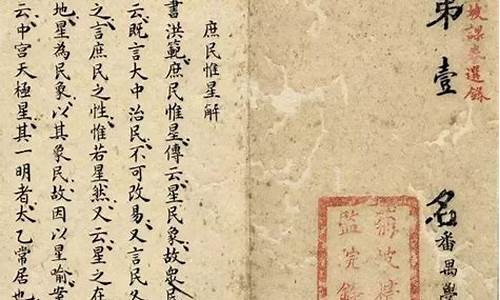 菊坡課卷選錄
第壹名番禺學
菊坡精
監完錄
庶民惟星解
書洪範庶民惟星傳云星民象故眾民
云既言大中治民不可改易又言民各
之言庶民之性惟若星然又云星之在
地星為民象以其象民故因以星喻案
云中宮天極星其一明者太乙常居也